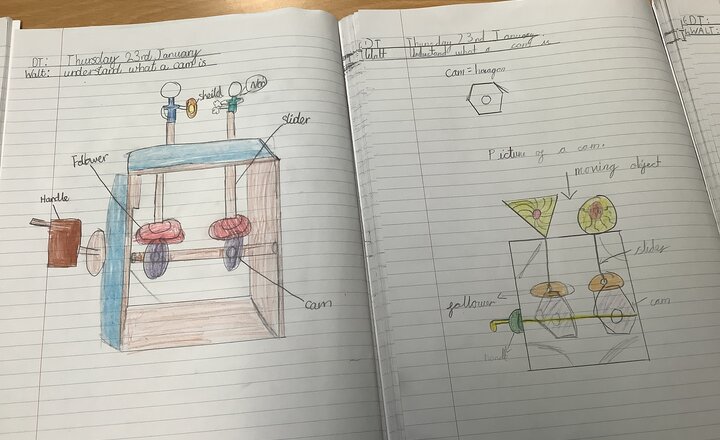 DT: Thursday 23rd January
Walt: understand what a cam is
sheild
slider
Follower
Handle
cam
DT Thursday 23rd January
Walt understand what a cam is
cam = hexagon
Picture of a cam.
moving object
slider
follower
cam
DT:
WALT: